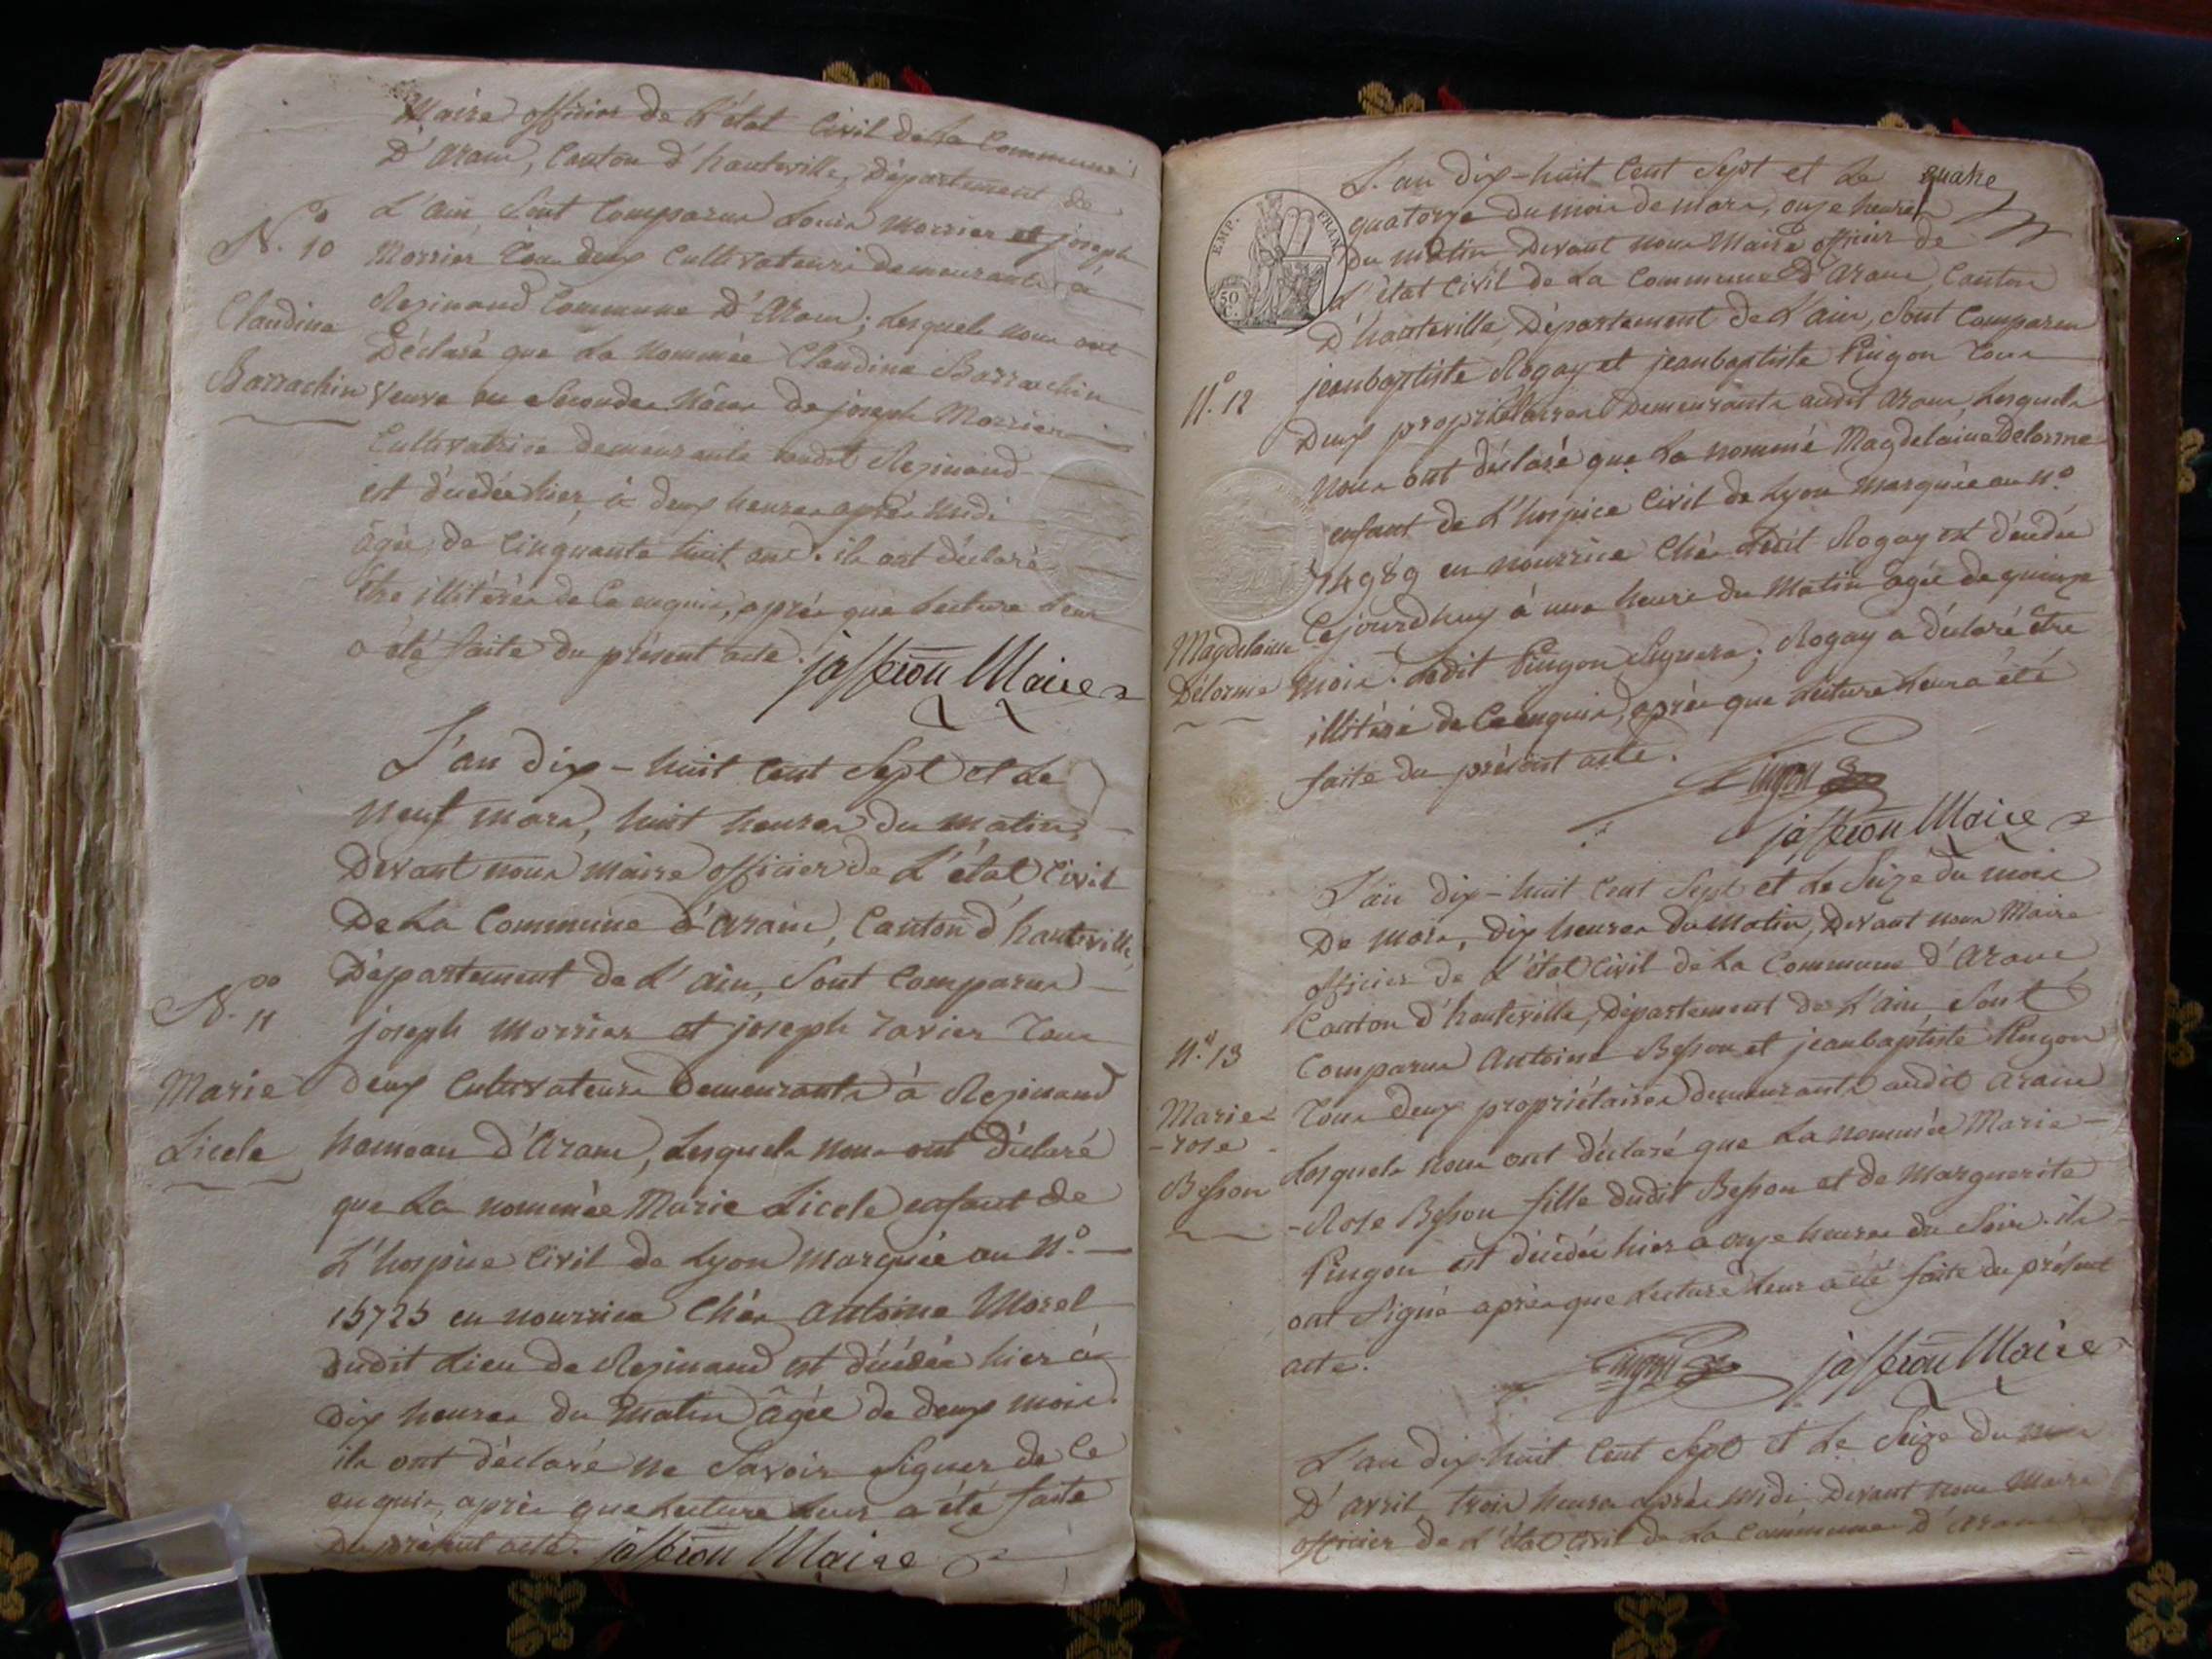 Maire officier de L'état Civil de La Commune
D'aranc, Canton d'hauteville, Département de
L'ain, Sont Comparus Louis Morrier et joseph
N.º 10
Morrier tous deux Cultivateurs demeurants à
Rezinand Commune D'Aranc; Lesquels nous ont
Claudine
Déclaré que La nommée Claudine Barrachin
Barrachin
Veuve en Secondes Nôces de joseph Morrier
Cultivatrice demeurante audit Rezinand
est décédée hier, à deux heures après midi
âgée de Cinquante huit ans. ils ont déclaré
être illitérés de Ce enquis, après que Lecture Leur
a été faite du présent acte.
jafferon Maire
L'an dix-huit Cent Sept et Le
neuf mars, huit heures du matin,
Devant nous Maire officier de L'état Civil
De La Commune d'aranc, Canton d'hauteville,
Département de L'ain, Sont Comparus
N.º 11
joseph Morrier et joseph ravier Tous
Marie
deux Cultivateurs Demeurants à Rezinand
Licele
hameau d'Aranc, Lesquels nous ont Déclaré
que La nommée Marie Licele enfant de
L'hospice Civil de Lyon Marquée au N.º
15725 en nourrice Chés antoine Morel
dudit Lieu de Rezinand est décédée hier à
dix heures du Matin âgée de deux mois.
ils ont déclaré ne Savoir Signer de Ce
enquis, après que Lecture Leur a été faite
Du présent acte. jafferon Maire
L'an dix-huit Cent Sept et Le quatre
quatorze du mois de mars, onze heures
EMP. FRAN
50 C.
Du matin Devant nous Maire officier de
L'état Civil de La Commune d'Aranc, Canton
D'hauteville, Département de L'ain, Sont Comparus
jeanbaptiste Rogay et jeanbaptiste Pingon Tous
N.º 12
Deux propriétaires Demeurants audit Aranc, Lesquels
Nous ont déclaré que La nommé Magdelaine Delorme
enfant de L'hospice Civil de Lyon Marquée au N.º
14989 en nourrice Chés Ledit Rogay est décédée
Cejourdhuy à une heure du Matin agée de quinze
Magdelaine
Délorme
mois. Ledit Pingon Signera; Rogay a déclaré être
illitéré de Ce enquis, après que Lecture Leur a été
faite du présent acte.
Pingon
jafferon Maire
L'an dix-huit Cent Sept et Le Seize du mois
De mars, dix heures du Matin, Devant nous Maire
officier de L'état Civil de La Commune d'Aranc
Canton d'hauteville, Département de L'ain, Sont
N.º 13
Comparus Antoine Besson et jeanbaptiste Pingon
Marie
-rose
Tous deux propriétaires demeurants audit Aranc
Lesquels nous ont déclaré que La nommée Marie-
Besson
-Rose Besson fille dudit Besson et de Marguerite
Pingon est décédée hier à onze heures du Soir. ils
ont Signé après que Lecture Leur a été faite du présent
acte.
Pingon jafferon Maire
L'an dix-huit Cent Sept et Le Seize du mois
D'avril, trois heures après midi, Devant nous Maire
officier de L'état Civil de La Commune D'aranc